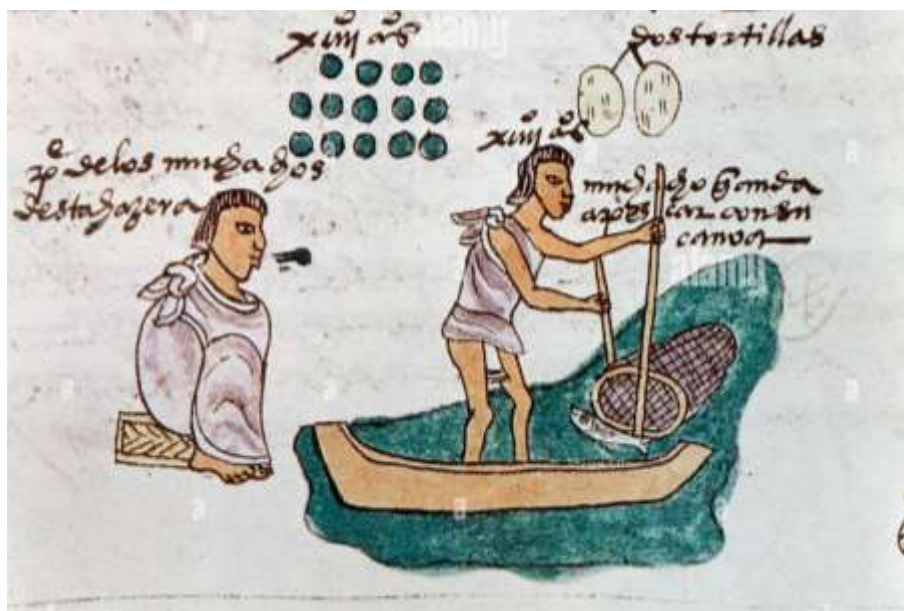 xiiijº aºs
dos tortillas
xiiijº aºs
pe de los muchachos
desta hazera
muchacho q anda
a pescar con su
canoa
alamy
alamy
a